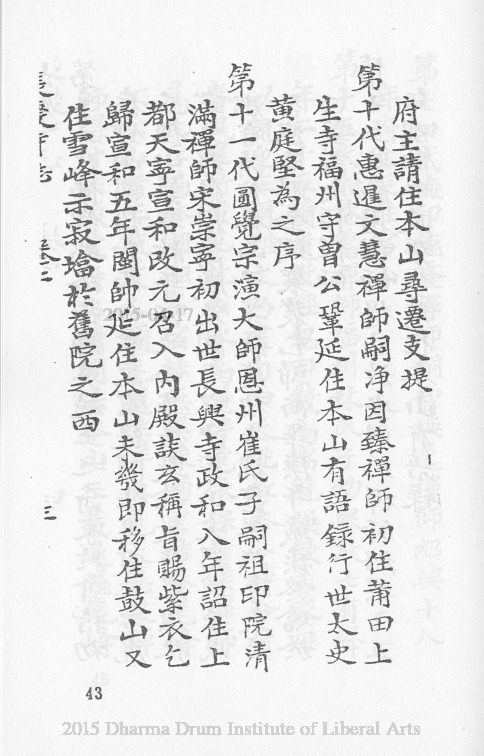 府主請住本山尋遷支提
第十代惠暹文慧禪師嗣净因臻禪師初住莆田上
生寺福州守曾公鞏延住本山有語錄行世太史
黄庭堅為之序
第十一代圓覺宗演大師恩州崔氏子嗣祖印院清
滿禪師宋崇寧初出世長興寺政和八年詔住上
都天寧宣和改元召入内殿談玄稱旨賜紫衣乞
歸宣和五年閩帥延住本山未幾即移住鼓山又
住雪峰示寂塔於舊院之西
寺志 卷二 三
43
2015 Dharma Drum Institute of Liberal Arts